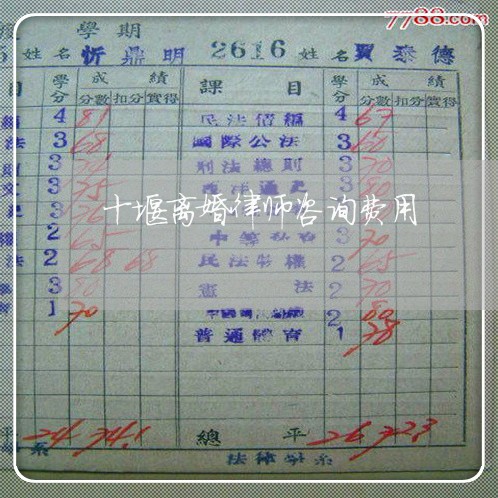 7788.com
學期
5 姓名 忻鼎明 2616 姓名 賈泰德
目 學分 成績 課目 學分 成績
分數 扣分 實得 分數 扣分 實得
4 81 民法債編 4 67
法 3 68 國際公法 3 60
3 刑法總則 3 70
3 75 3 80
3 76 3
十堰离婚律师咨询费用
2 65 3 70
法 2 68 68 民法物權 2 65
3 80 憲法 2 70
1 70 2 80
普通體育 1 78
平 24 74.1 總平 26 72.3
系 法律學系